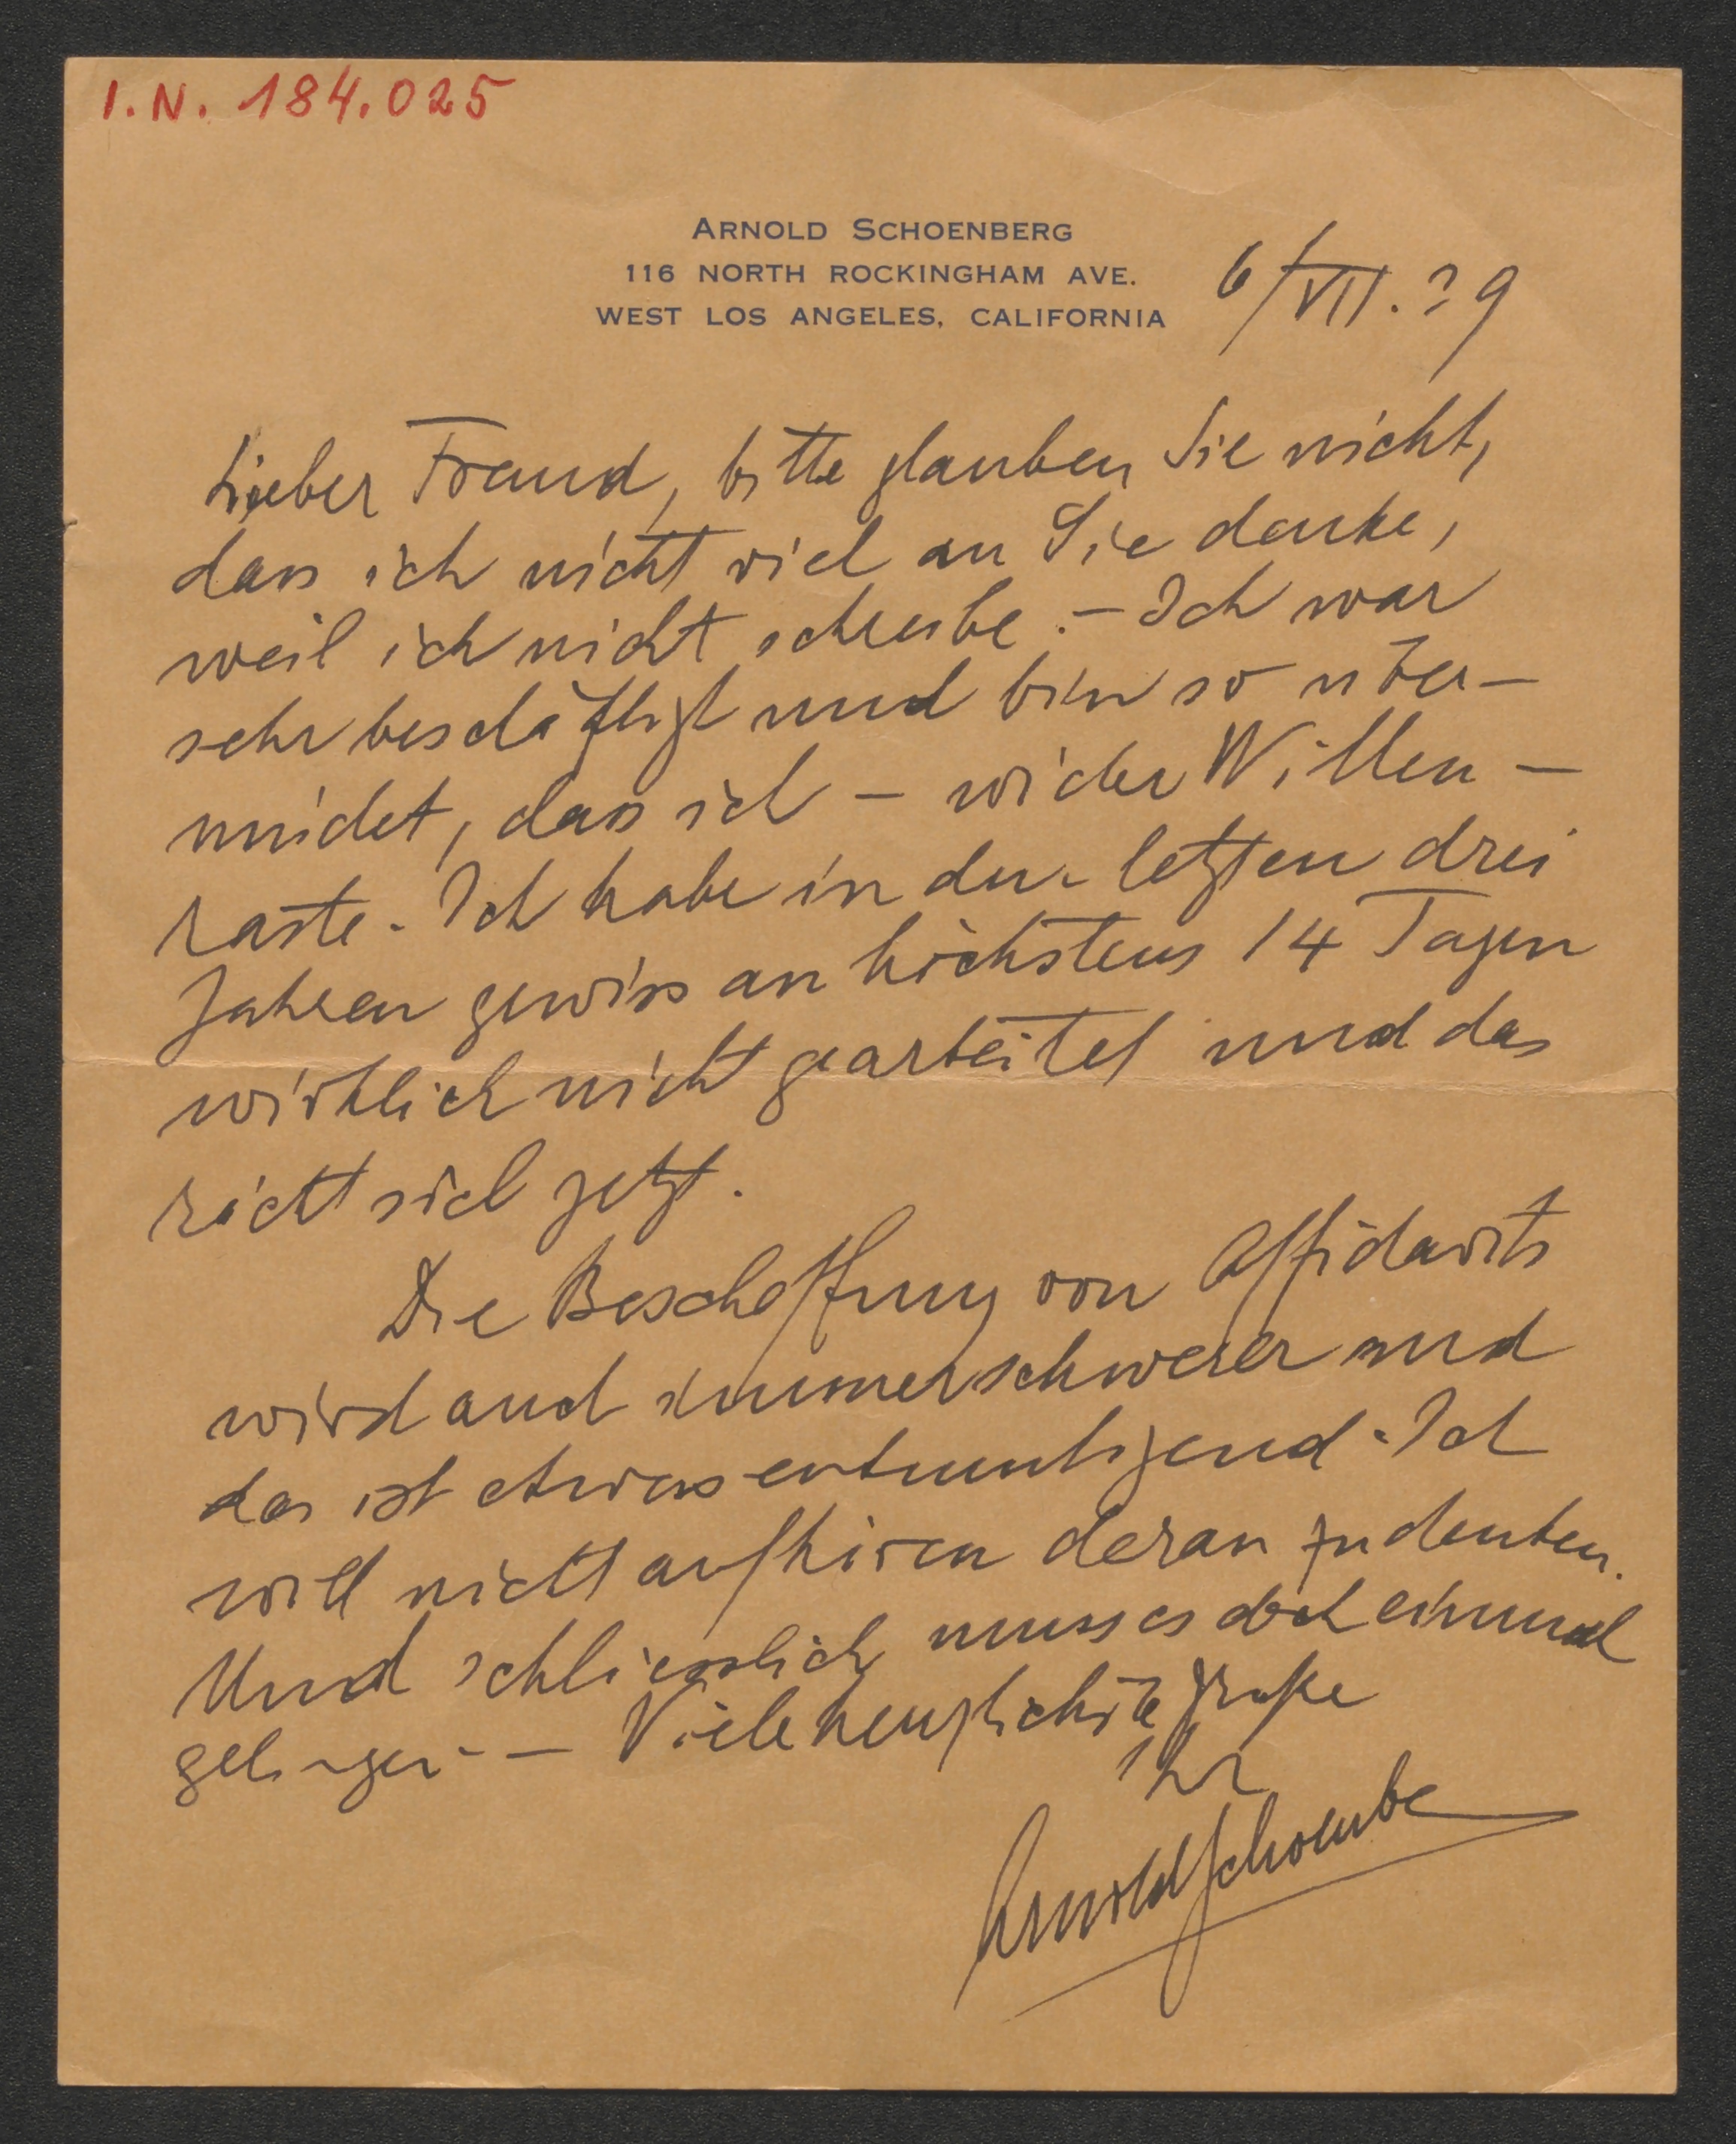 I.N. 184.025
ARNOLD SCHOENBERG
116 NORTH ROCKINGHAM AVE.
WEST LOS ANGELES, CALIFORNIA
6/VII.39
Lieber Freund, bitte glauben Sie nicht,
dass ich nicht viel an Sie denke,
weil ich nicht schreibe. – Ich war
sehr beschäftigt und bin so über-
müdet, dass ich – wider Willen –
raste. Ich habe in den letzten drei
Jahren gewiss an höchstens 14 Tagen
wirklich nicht gearbeitet und das
rächt sich jetzt.
Die Beschaffung von Affidavits
wird auch immer schwerer und
das ist etwas entmutigend. Ich
will nicht aufhören daran zu denken.
Und schliesslich muss es doch einmal
gelingen – Viele herzlichste Grüße
Ihr
Arnold Schoenberg